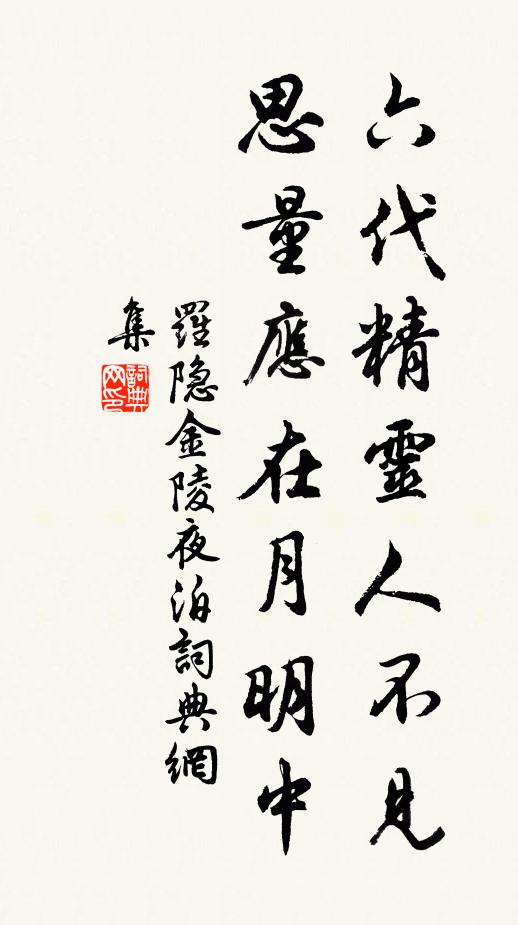 六代精靈人不見
思量應在月明中
羅隐金陵夜泊詞典網
集
詞典
网印